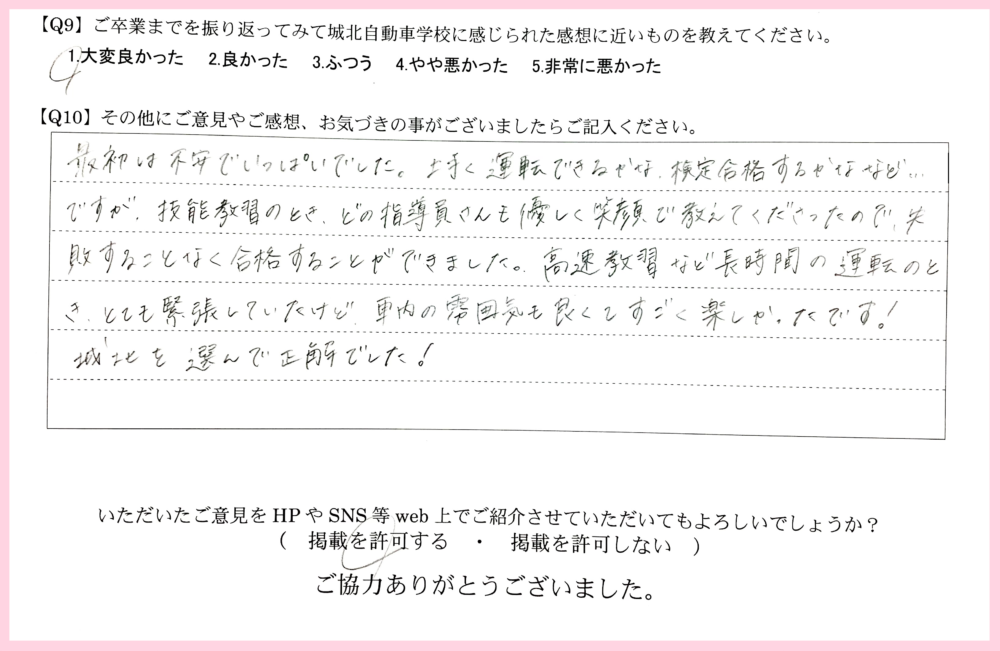 【Q9】ご卒業までを振り返ってみて城北自動車学校に感じられた感想に近いものを教えてください。
1.大変良かった 2.良かった 3.ふつう 4.やや悪かった 5.非常に悪かった
【Q10】その他にご意見やご感想、お気づきの事がございましたらご記入ください。
最初は不安でいっぱいでした。上手く運転できるかな、検定合格するかななど…
ですが、技能教習のとき、どの指導員さんも優しく笑顔で教えてくださったので、失
敗することなく合格することができました。高速教習など長時間の運転のと
き、とても緊張していたけど、車内の雰囲気も良くてすごく楽しかったです!
城北を選んで正解でした!
いただいたご意見をHPやSNS等web上でご紹介させていただいてもよろしいでしょうか?
( 掲載を許可する ・ 掲載を許可しない )
ご協力ありがとうございました。